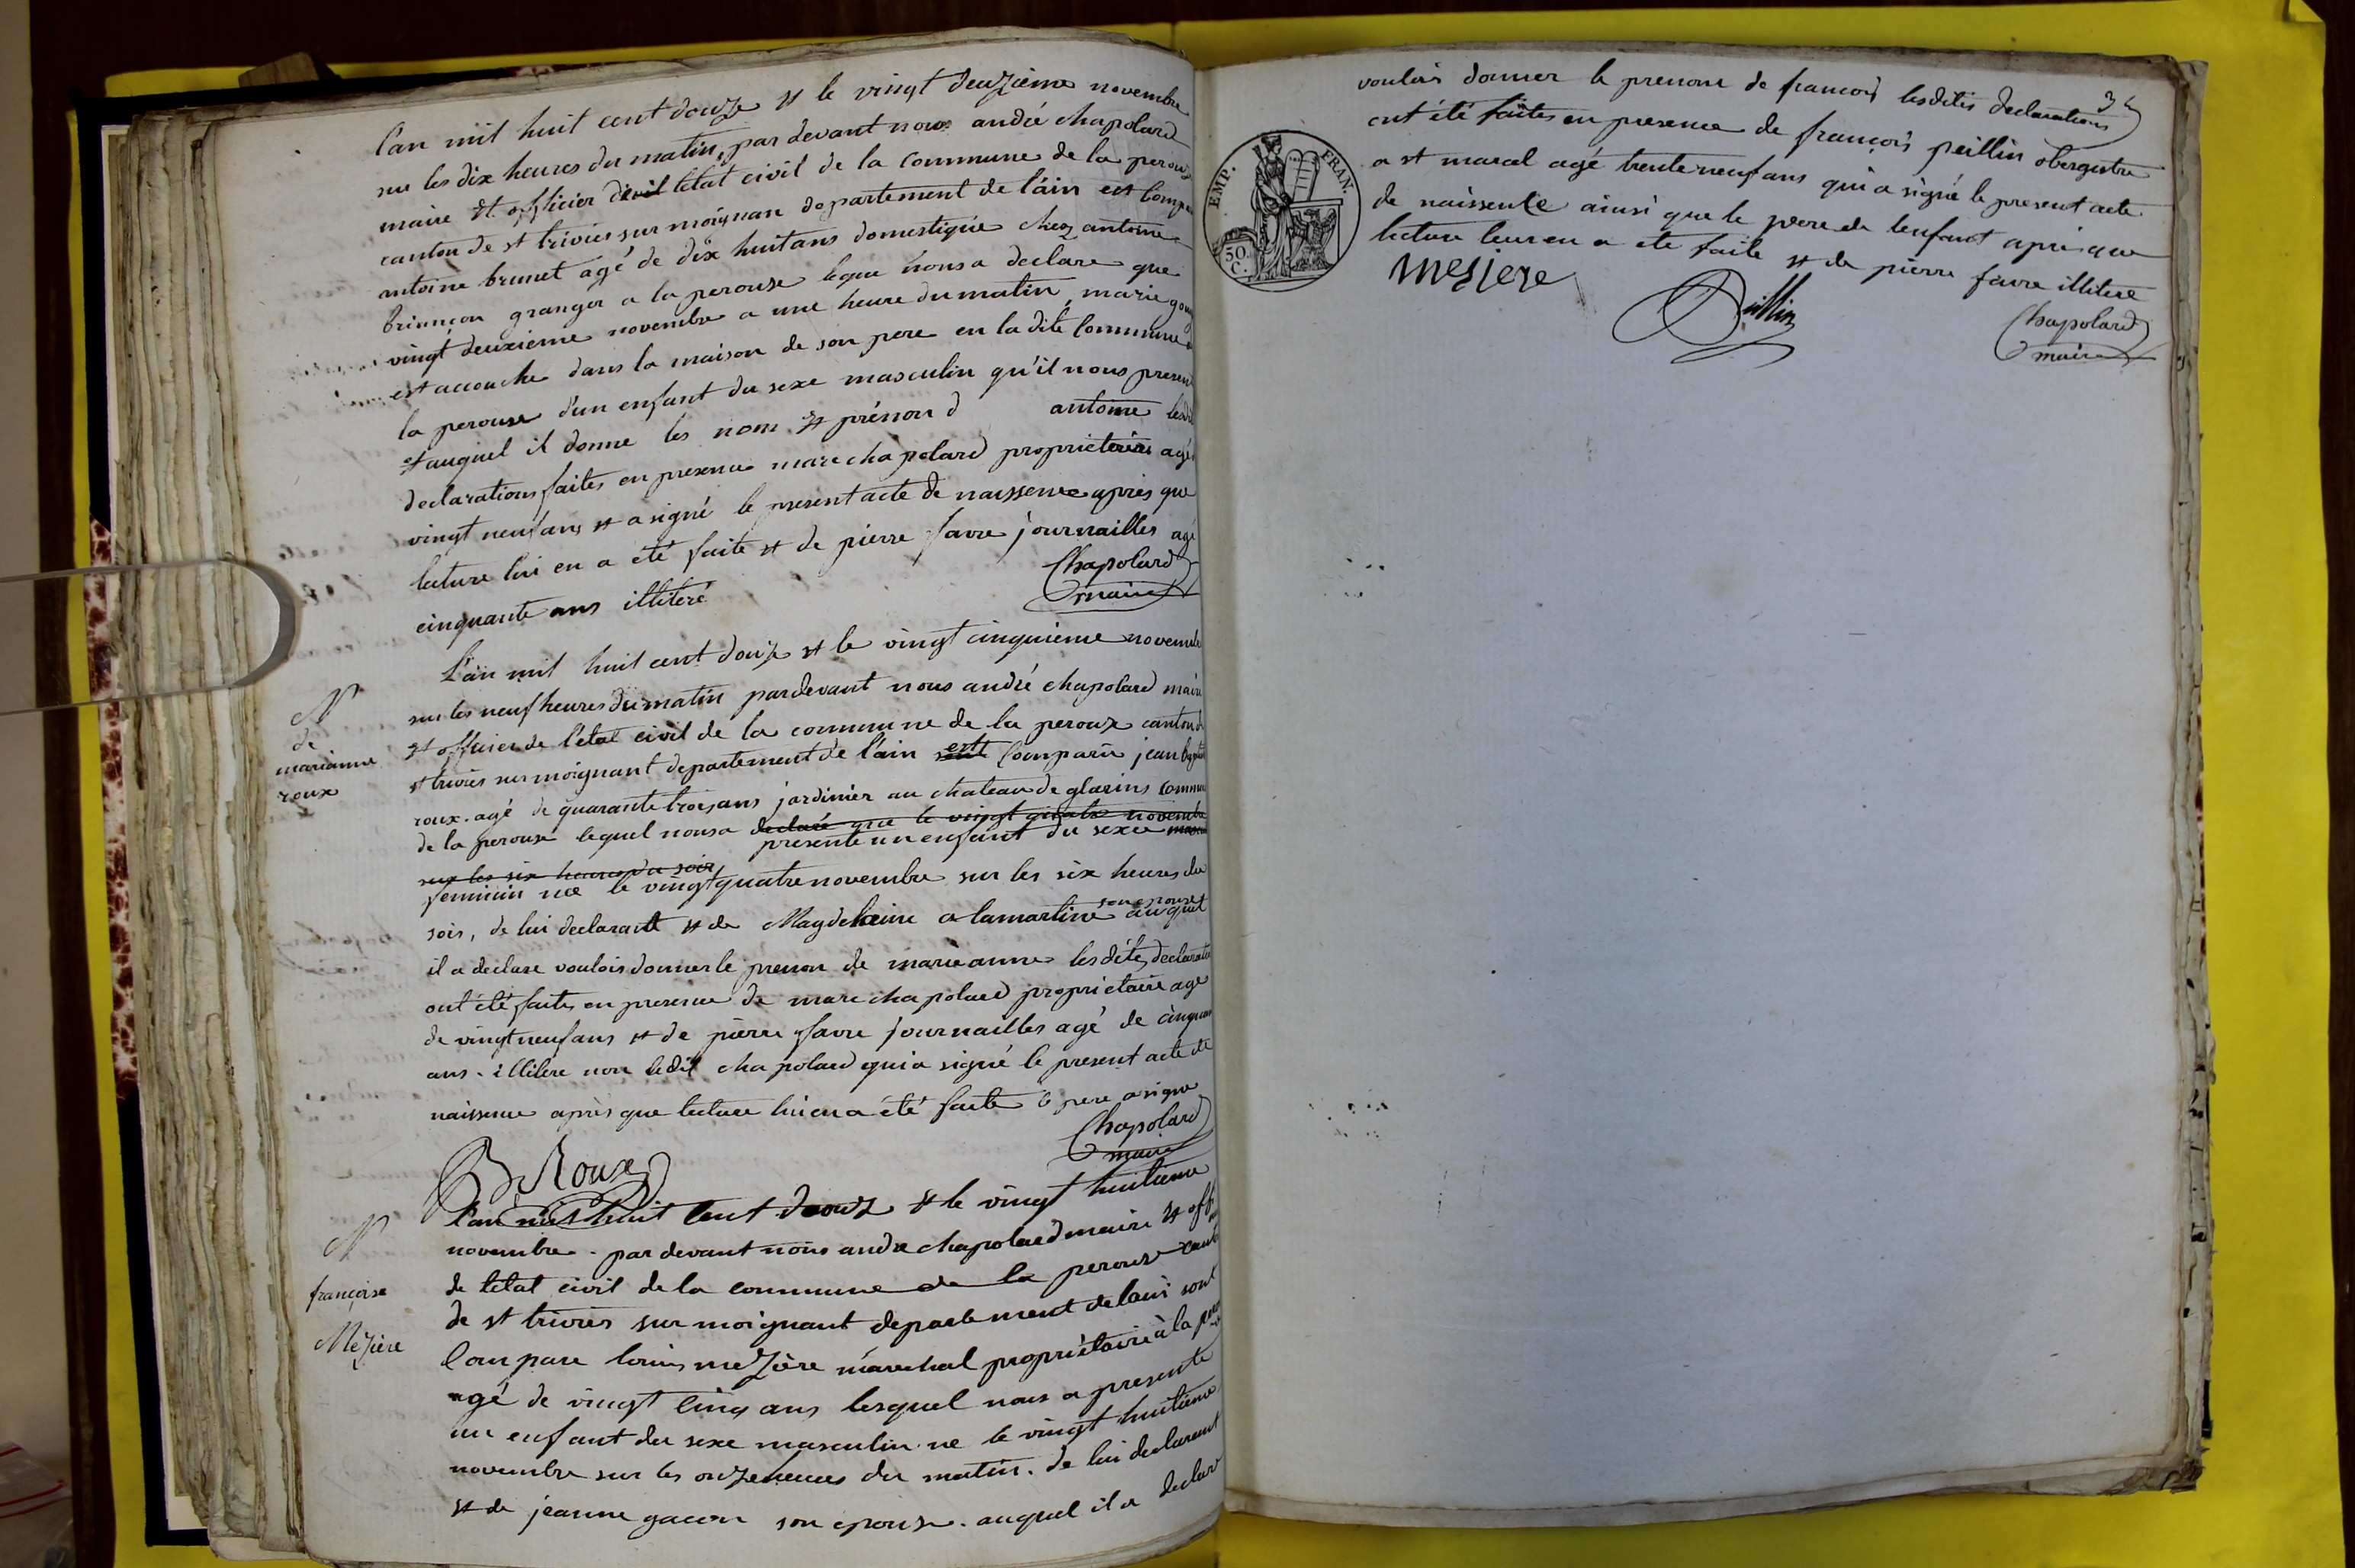 l'an mil huit cent douze et le vingt deuzième novembre
sur les dix heures du matin, par devant nous andré chapolard
maire et officier de l'état civil de la commune de la perouz
canton de st trivier sur moignan departement de l'ain est compa
antoine brunet agé de dix huit ans domestique chez antoine
briançon granger a la perouse lequel nous a declare que
vingt deuxième novembre a une heure du matin, marie
est accouche dans la maison de son pere en la dite Commune
la perouse d'un enfant du sexe masculin qu'il nous present
et auquel il donne les nom et prénon d antoine lesdi
declarations faites en presence marc chapolard proprietaire agé
vingt neuf ans et a signé le present acte de naissence après que
lecture lui en a été faite et de pierre favre journailles agé
cinquante ans illiteré
Chapolard
maire
N
de
marianne
roux
L'an mil huit cent douze et le vingt cinquieme novembre
sur les neuf heures du matin pardevant nous andré chapolard maire
et officier de l'etat civil de la commune de la perouze canton de
st trivier sur moignant departement de l'ain est Comparu jean baptiste
roux. agé de quarante trois ans jardinier au chateau de glarins commu
de la perouse lequel nous a declaré que le vingt quatre novembre
presente un enfant du sexe mascul
sur les six heures du soir
feminin née le vingt quatre novembre sur les six heures du
soir, de lui declarant et de Magdeleine alamartine son epouse auquel
il a declare vouloir donner le prenon de marieanne lesdites declaration
ont été faites en presence de marc chapolard propriétaire age
de vingt neuf ans et de pierre favre journailles agé de cinquan
ans. illitere non ledit chapolard qui a signé le present acte de
naissence après que lecture lui en a été faite le pere a signe
Chapolard
maire
B Roux
N
françoise
Mezière
l'an mil huit cent douze et le vingt huitieme
novembre. par devant nous andre chapolard maire et offi
de l'etat civil de la commune de la perouse cant
de st trivier sur moignant departement de lain sont
Compare louis mezière marechal propriétaire à la per
agé de vingt cinq ans lesquel nous a presente
un enfant du sexe masculin ne le vingt huitieme
novembre sur les onze heures du matin. de lui declarent
et de jeanne gacon son epouse. auquel il a declare
vouloir donner le prenom de francois lesdites declarations
ont été faites en presence de françois peillin obergiste
a st marcel agé trente neuf ans qui a signé le present acte
de naissence ainsi que le pere de lenfant après que
lecture leur en a ete faite et de pierre favre illitere
mesiere
Peillin
Chapolard
maire
EMP. FRAN.
50.
C.